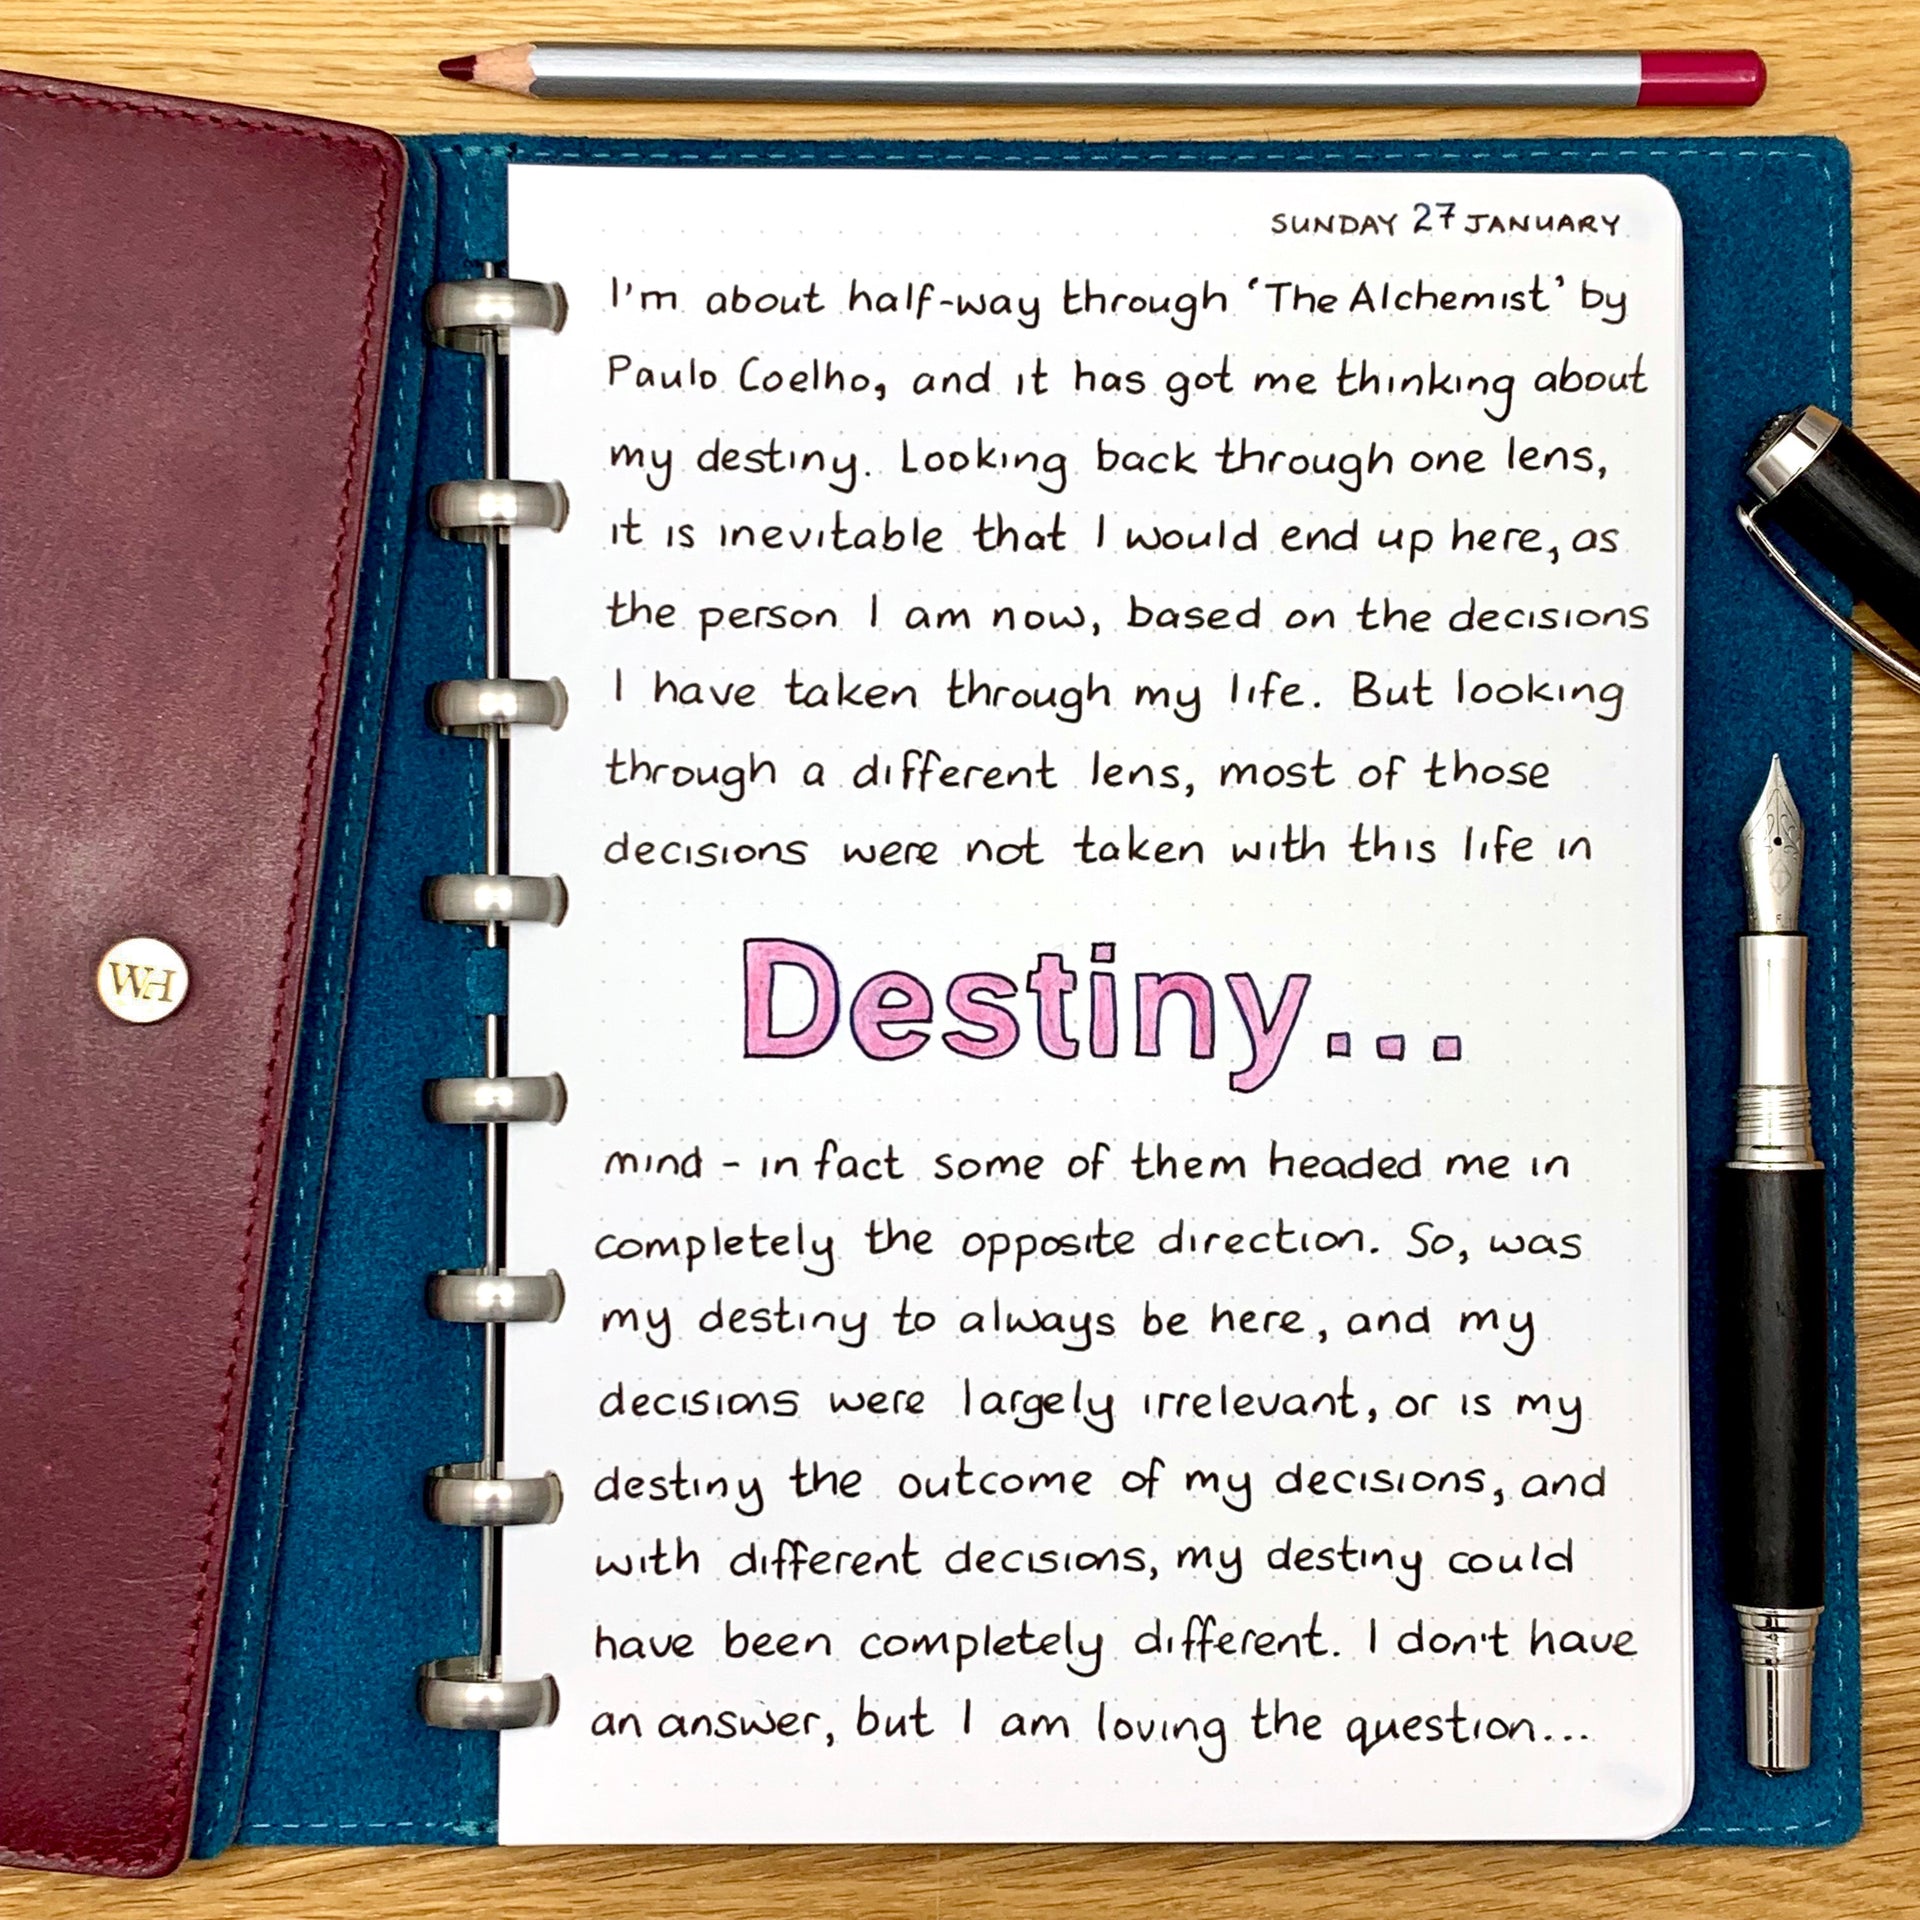 SUNDAY 27 JANUARY
I'm about half-way through 'The Alchemist' by
Paulo Coelho, and it has got me thinking about
my destiny. Looking back through one lens,
it is inevitable that I would end up here, as
the person I am now, based on the decisions
I have taken through my life. But looking
through a different lens, most of those
decisions were not taken with this life in
Destiny...
mind - in fact some of them headed me in
completely the opposite direction. So, was
my destiny to always be here, and my
decisions were largely irrelevant, or is my
destiny the outcome of my decisions, and
with different decisions, my destiny could
have been completely different. I don't have
an answer, but I am loving the question...
WH
F